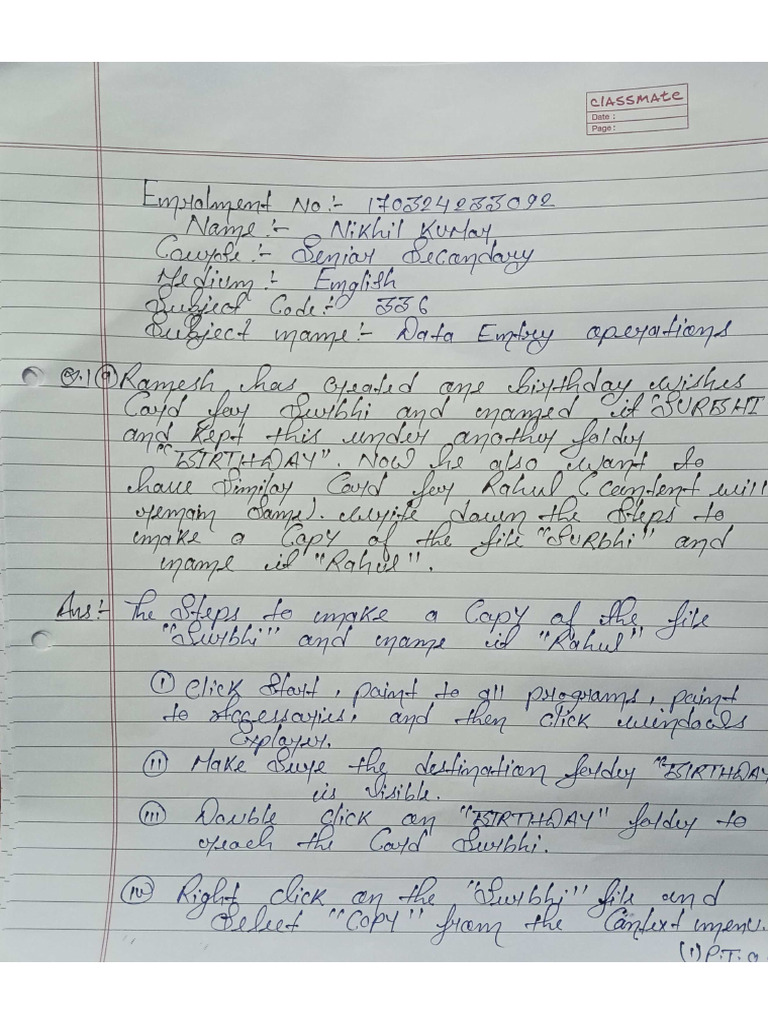 classmate
Date :
Page :
Enrolment No :- 170324233092
Name :- Nikhil Kumar
Course :- Senior Secondary
Medium :- English
Subject Code :- 336
Subject name :- Data Entry operations
Q.1 (a) Ramesh has created one birthday wishes
Card for Surbhi and named it "SURBHI
and kept this under another folder
"BIRTHDAY". Now he also want to
have Similar Card for Rahul (content will
remain same). Write down the Steps to
make a Copy of the file "SURbhi" and
name it "Rahul".
Ans :- The Steps to make a Copy of the file
"Surbhi" and name it "Rahul"
(i) Click Start, point to all programs, point
to Accessories, and then click windows
Explorer.
(ii) Make Sure the destination folder "BIRTHDAY
is visible.
(iii) Double click on "BIRTHDAY" folder to
reach the Card Surbhi.
(iv) Right click on the "Surbhi" file and
Select "COPY" from the Context menu.
(1) P.T.O